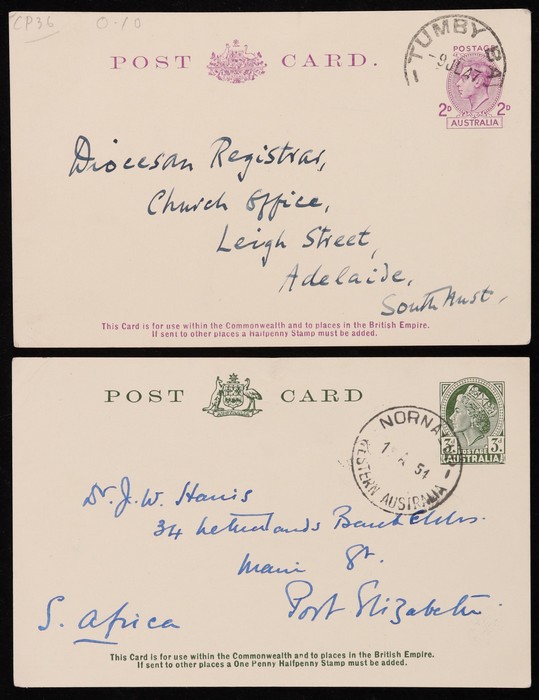 CP36 0-10
POST CARD.
TUMBY BA
-9JL47
POSTAGE
2D 2D
AUSTRALIA
Diocesan Registrar,
Church Office,
Leigh Street,
Adelaide,
South Aust.,
This Card is for use within the Commonwealth and to places in the British Empire.
If sent to other places a Halfpenny Stamp must be added.
POST CARD
NORNA
54
WESTERN AUSTRALIA
3D 3D
POSTAGE
AUSTRALIA
Dr. J. W. Harris
34 Netherlands Bank Bldgs.
Main St.
Port Elizabeth.
S. Africa
This Card is for use within the Commonwealth and to places in the British Empire.
If sent to other places a One Penny Halfpenny Stamp must be added.